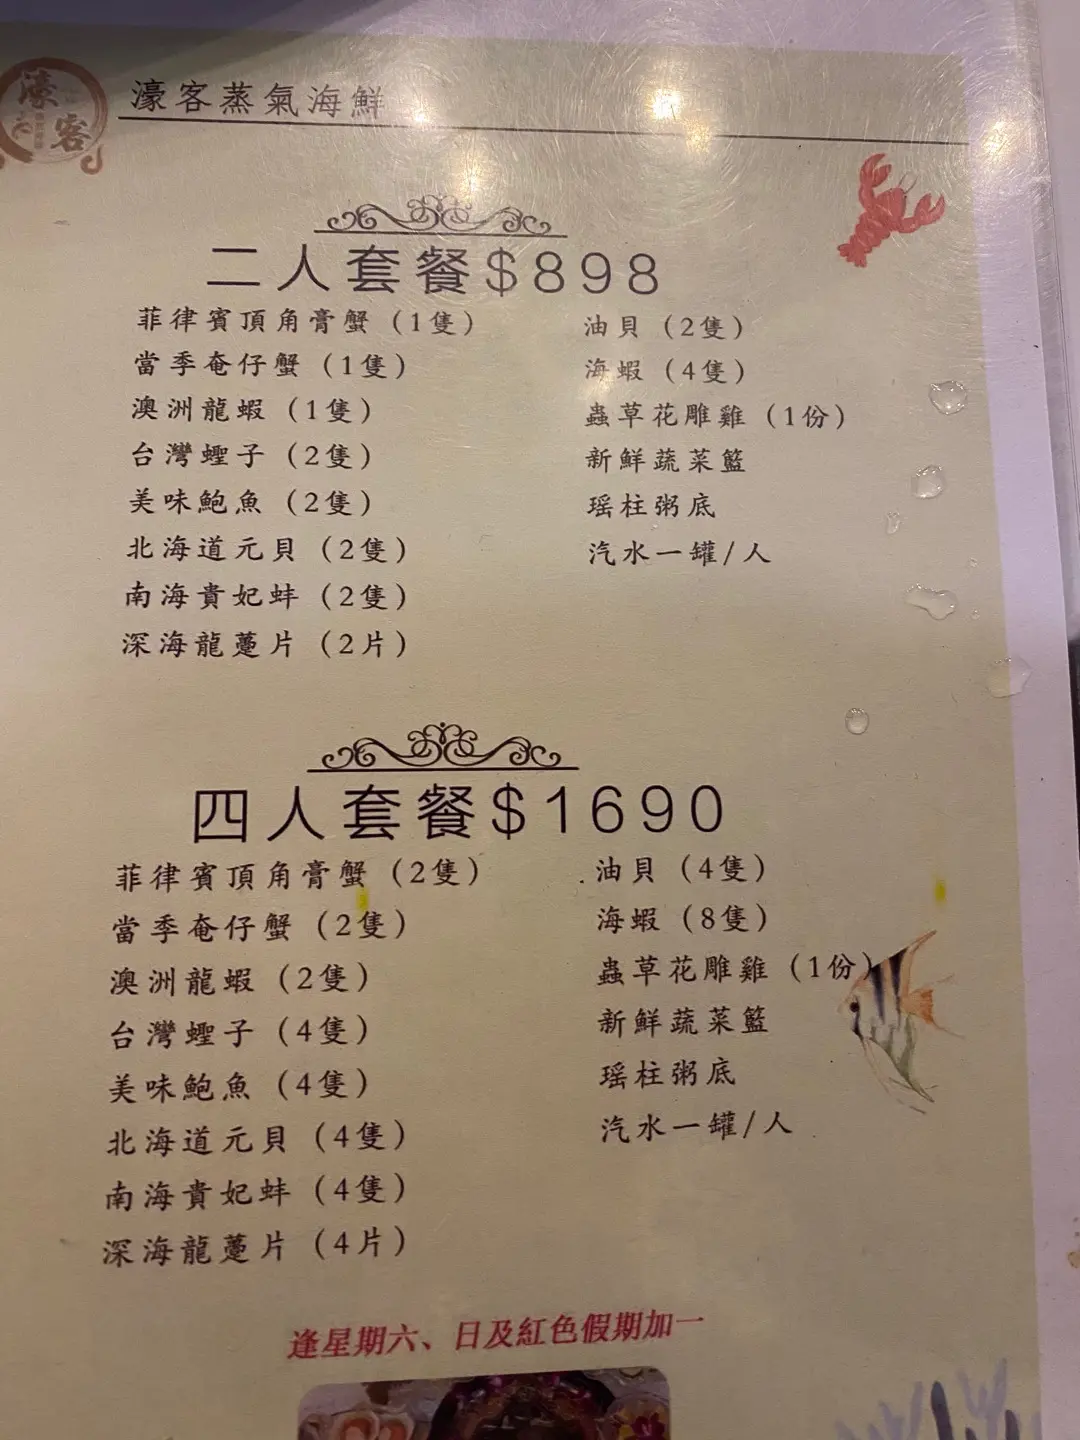 濠客
濠客蒸氣海鮮
二人套餐$898
菲律賓頂角膏蟹（1隻）
當季奄仔蟹（1隻）
澳洲龍蝦（1隻）
台灣蟶子（2隻）
美味鮑魚（2隻）
北海道元貝（2隻）
南海貴妃蚌（2隻）
深海龍躉片（2片）
油貝（2隻）
海蝦（4隻）
蟲草花雕雞（1份）
新鮮蔬菜籃
瑶柱粥底
汽水一罐/人
四人套餐$1690
菲律賓頂角膏蟹（2隻）
當季奄仔蟹（2隻）
澳洲龍蝦（2隻）
台灣蟶子（4隻）
美味鮑魚（4隻）
北海道元貝（4隻）
南海貴妃蚌（4隻）
深海龍躉片（4片）
油貝（4隻）
海蝦（8隻）
蟲草花雕雞（1份）
新鮮蔬菜籃
瑶柱粥底
汽水一罐/人
逢星期六、日及紅色假期加一